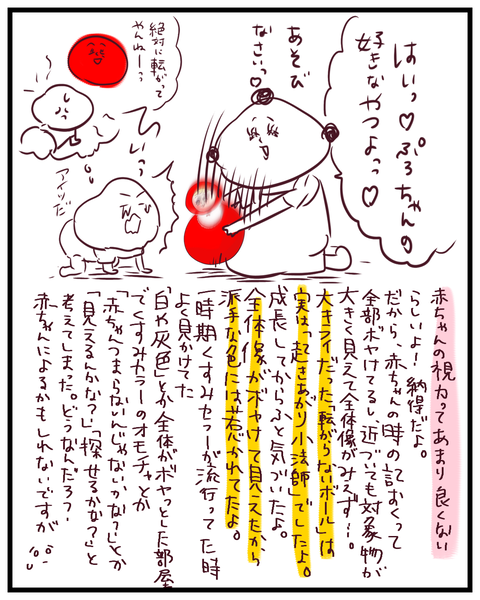 はいっ♡ぷろちゃんの
好きなやつよっ♡
あそび
なさいっ♡
絶対に転がって
やんねーーっ
ひいっっ
アイツだ
赤ちゃんの視力ってあまり良くない
らしいよ！納得だよ。
だから、赤ちゃんの時の記おくって
全部ボヤけてるし近づいても対象物が
大きく見えて全体像がみえず…。
大キライだった「転がらないボール」は
実は「起きあがり小法師」でしたよ。
成長してからふと気づいたよ。
全体像がボヤけて見えたから
派手な色には惹かれてたよ。
一時期くすみカラーが流行ってた時
よく見かけてた
「白や灰色」とか全体がボヤっとした部屋
でくすみカラーのオモチャとか
「赤ちゃんつまらないんじゃないかな？」とか
「見えるんかな？」「探せるかな？」と
考えてしまった。どうなんだろ？
赤ちゃんによるかもしれないですが